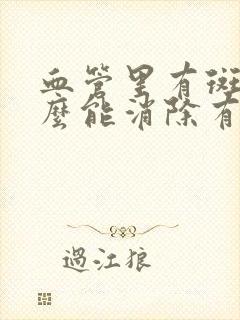 血管里有斑
麽能消除有
過江狼